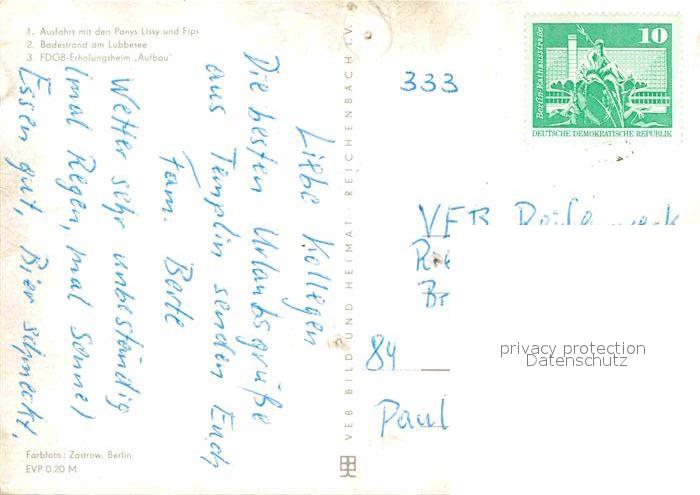 1. Ausfahrt mit den Ponys Lissy und Fips
2. Badestrand am Lübbesee
3 FDGB-Erholungsheim „Aufbau"
Liebe Kollegen
Die besten Urlaubsgrüße
aus Templin senden Euch
Fam. Berte
Wetter sehr unbeständig
(mal Regen, mal Sonne)
Essen gut, Bier schmeckt.
Farbfoto: Zastrow, Berlin
EVP 0.20 M
VEB BILD UND HEIMAT REICHENBACH I. V.
333
10
Berlin-Rathausstraße
DEUTSCHE DEMOKRATISCHE REPUBLIK
VEB
Br
84
Paul
privacy protection
Datenschutz